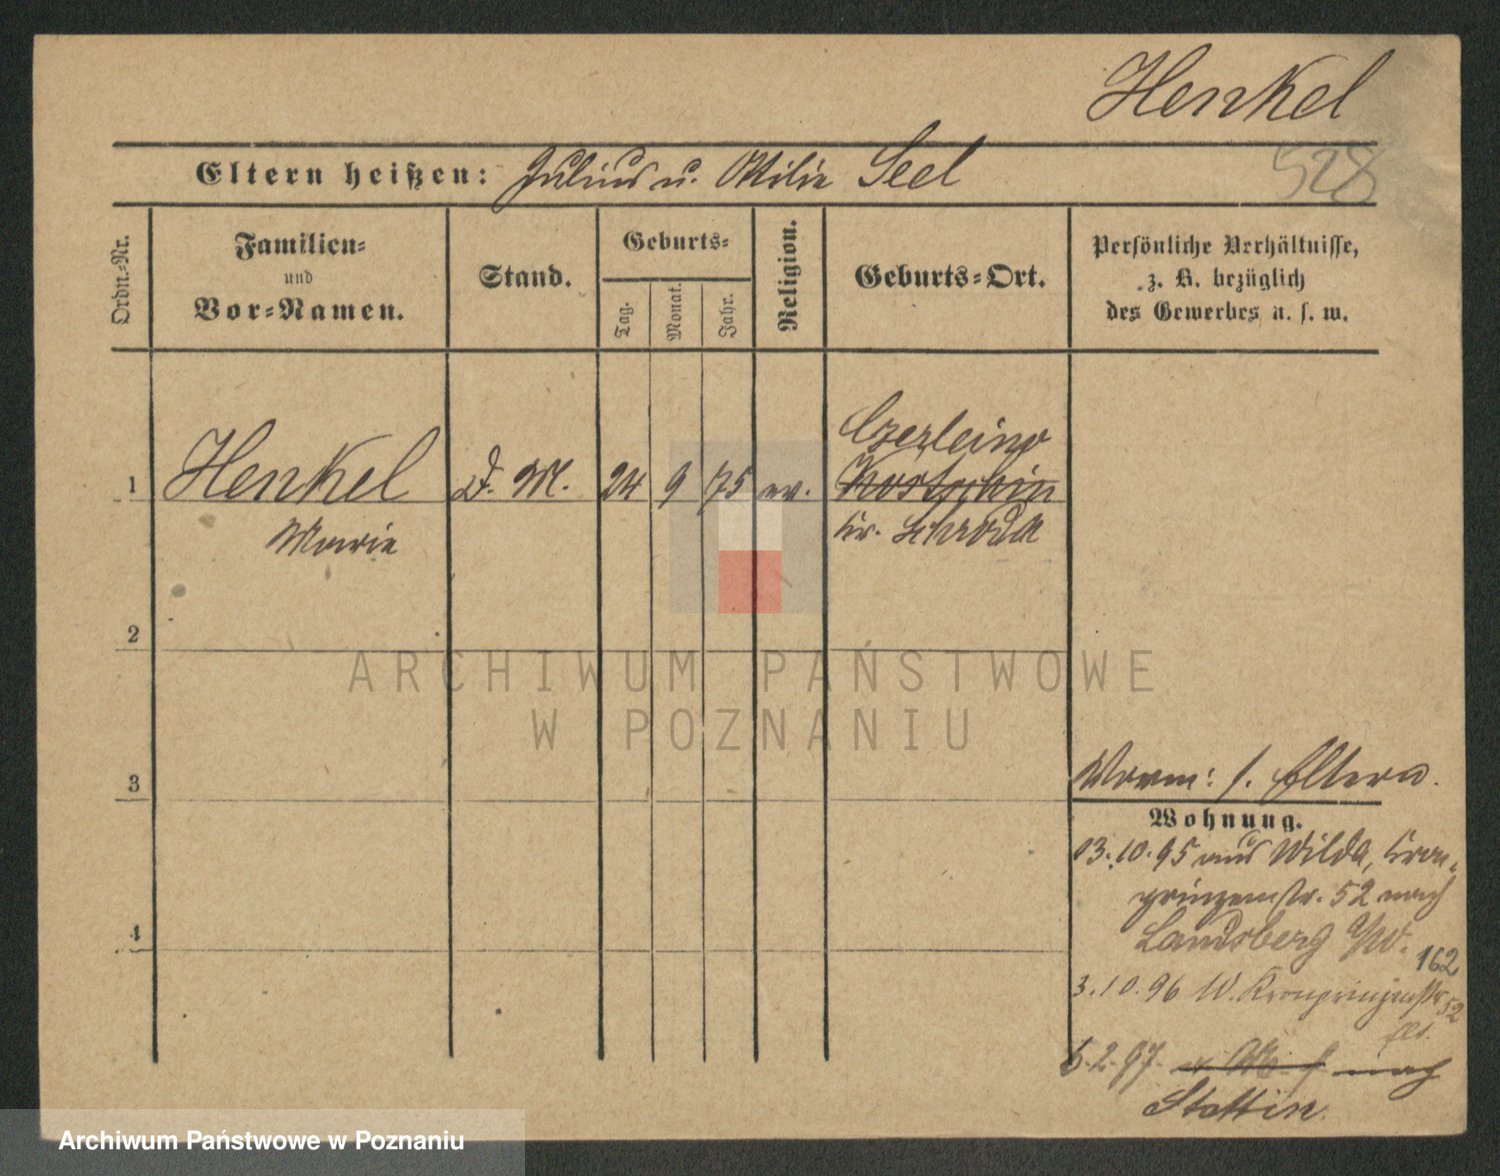 Henkel
528
Eltern heißen: Julius u. Ottilie Seel
Ordn.-Nr.
Familien-
und
Vor-Namen.
Stand.
Geburts-
Tag.
Monat.
Jahr.
Religion.
Geburts-Ort.
Persönliche Verhältnisse,
z. B. bezüglich
des Gewerbes u. s. w.
1
Henkel
Marie
D. M.
24
9
75
ev.
Czerleino
Kostschin
Kr. Schroda
2
3
4
ARCHIWUM PAŃSTWOWE
W POZNANIU
Verm: s. Eltern.
Wohnung.
03.10.95 aus Wilda, Kron-
prinzenstr. 52 nach
Landsberg a/W.
162
3.10.96 W. Kronprinzenstr. 52
6.2.97. nach
Stettin.
Archiwum Państwowe w Poznaniu